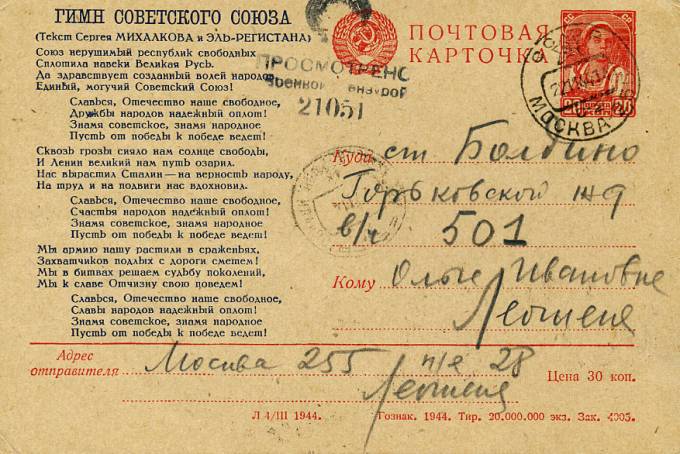 ГИМН СОВЕТСКОГО СОЮЗА
(Текст Сергея МИХАЛКОВА и ЭЛЬ-РЕГИСТАНА)
Союз нерушимый республик свободных
Сплотила навеки Великая Русь.
Да здравствует созданный волей народов
Единый, могучий Советский Союз!
Славься, Отечество наше свободное,
Дружбы народов надежный оплот!
Знамя советское, знамя народное
Пусть от победы к победе ведет!
Сквозь грозы сияло нам солнце свободы,
И Ленин великий нам путь озарил.
Нас вырастил Сталин — на верность народу,
На труд и на подвиги нас вдохновил.
Славься, Отечество наше свободное,
Счастья народов надежный оплот!
Знамя советское, знамя народное
Пусть от победы к победе ведет!
Мы армию нашу растили в сраженьях,
Захватчиков подлых с дороги сметем!
Мы в битвах решаем судьбу поколений,
Мы к славе Отчизну свою поведем!
Славься, Отечество наше свободное,
Славы народов надежный оплот!
Знамя советское, знамя народное
Пусть от победы к победе ведет!
ПОЧТОВАЯ
КАРТОЧКА
ПРОСМОТРЕНО
Военной Цензурой
21051
МОСКВА
20 20
Куда ст Болдино
Горьковской жд
в/ч 501
Кому Ольге Ивановне
Адрес
отправителя Москва 255 п/я 28
Цена 30 коп.
Л 4/III 1944.
Гознак. 1944. Тир. 20.000.000 экз. Зак. 4005.